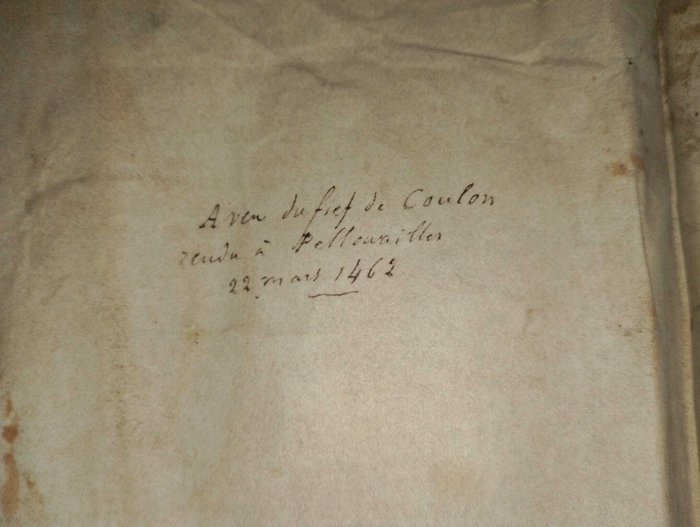 Aveu du fief de Coulon
rendu à Pellouailles
22 mars 1462